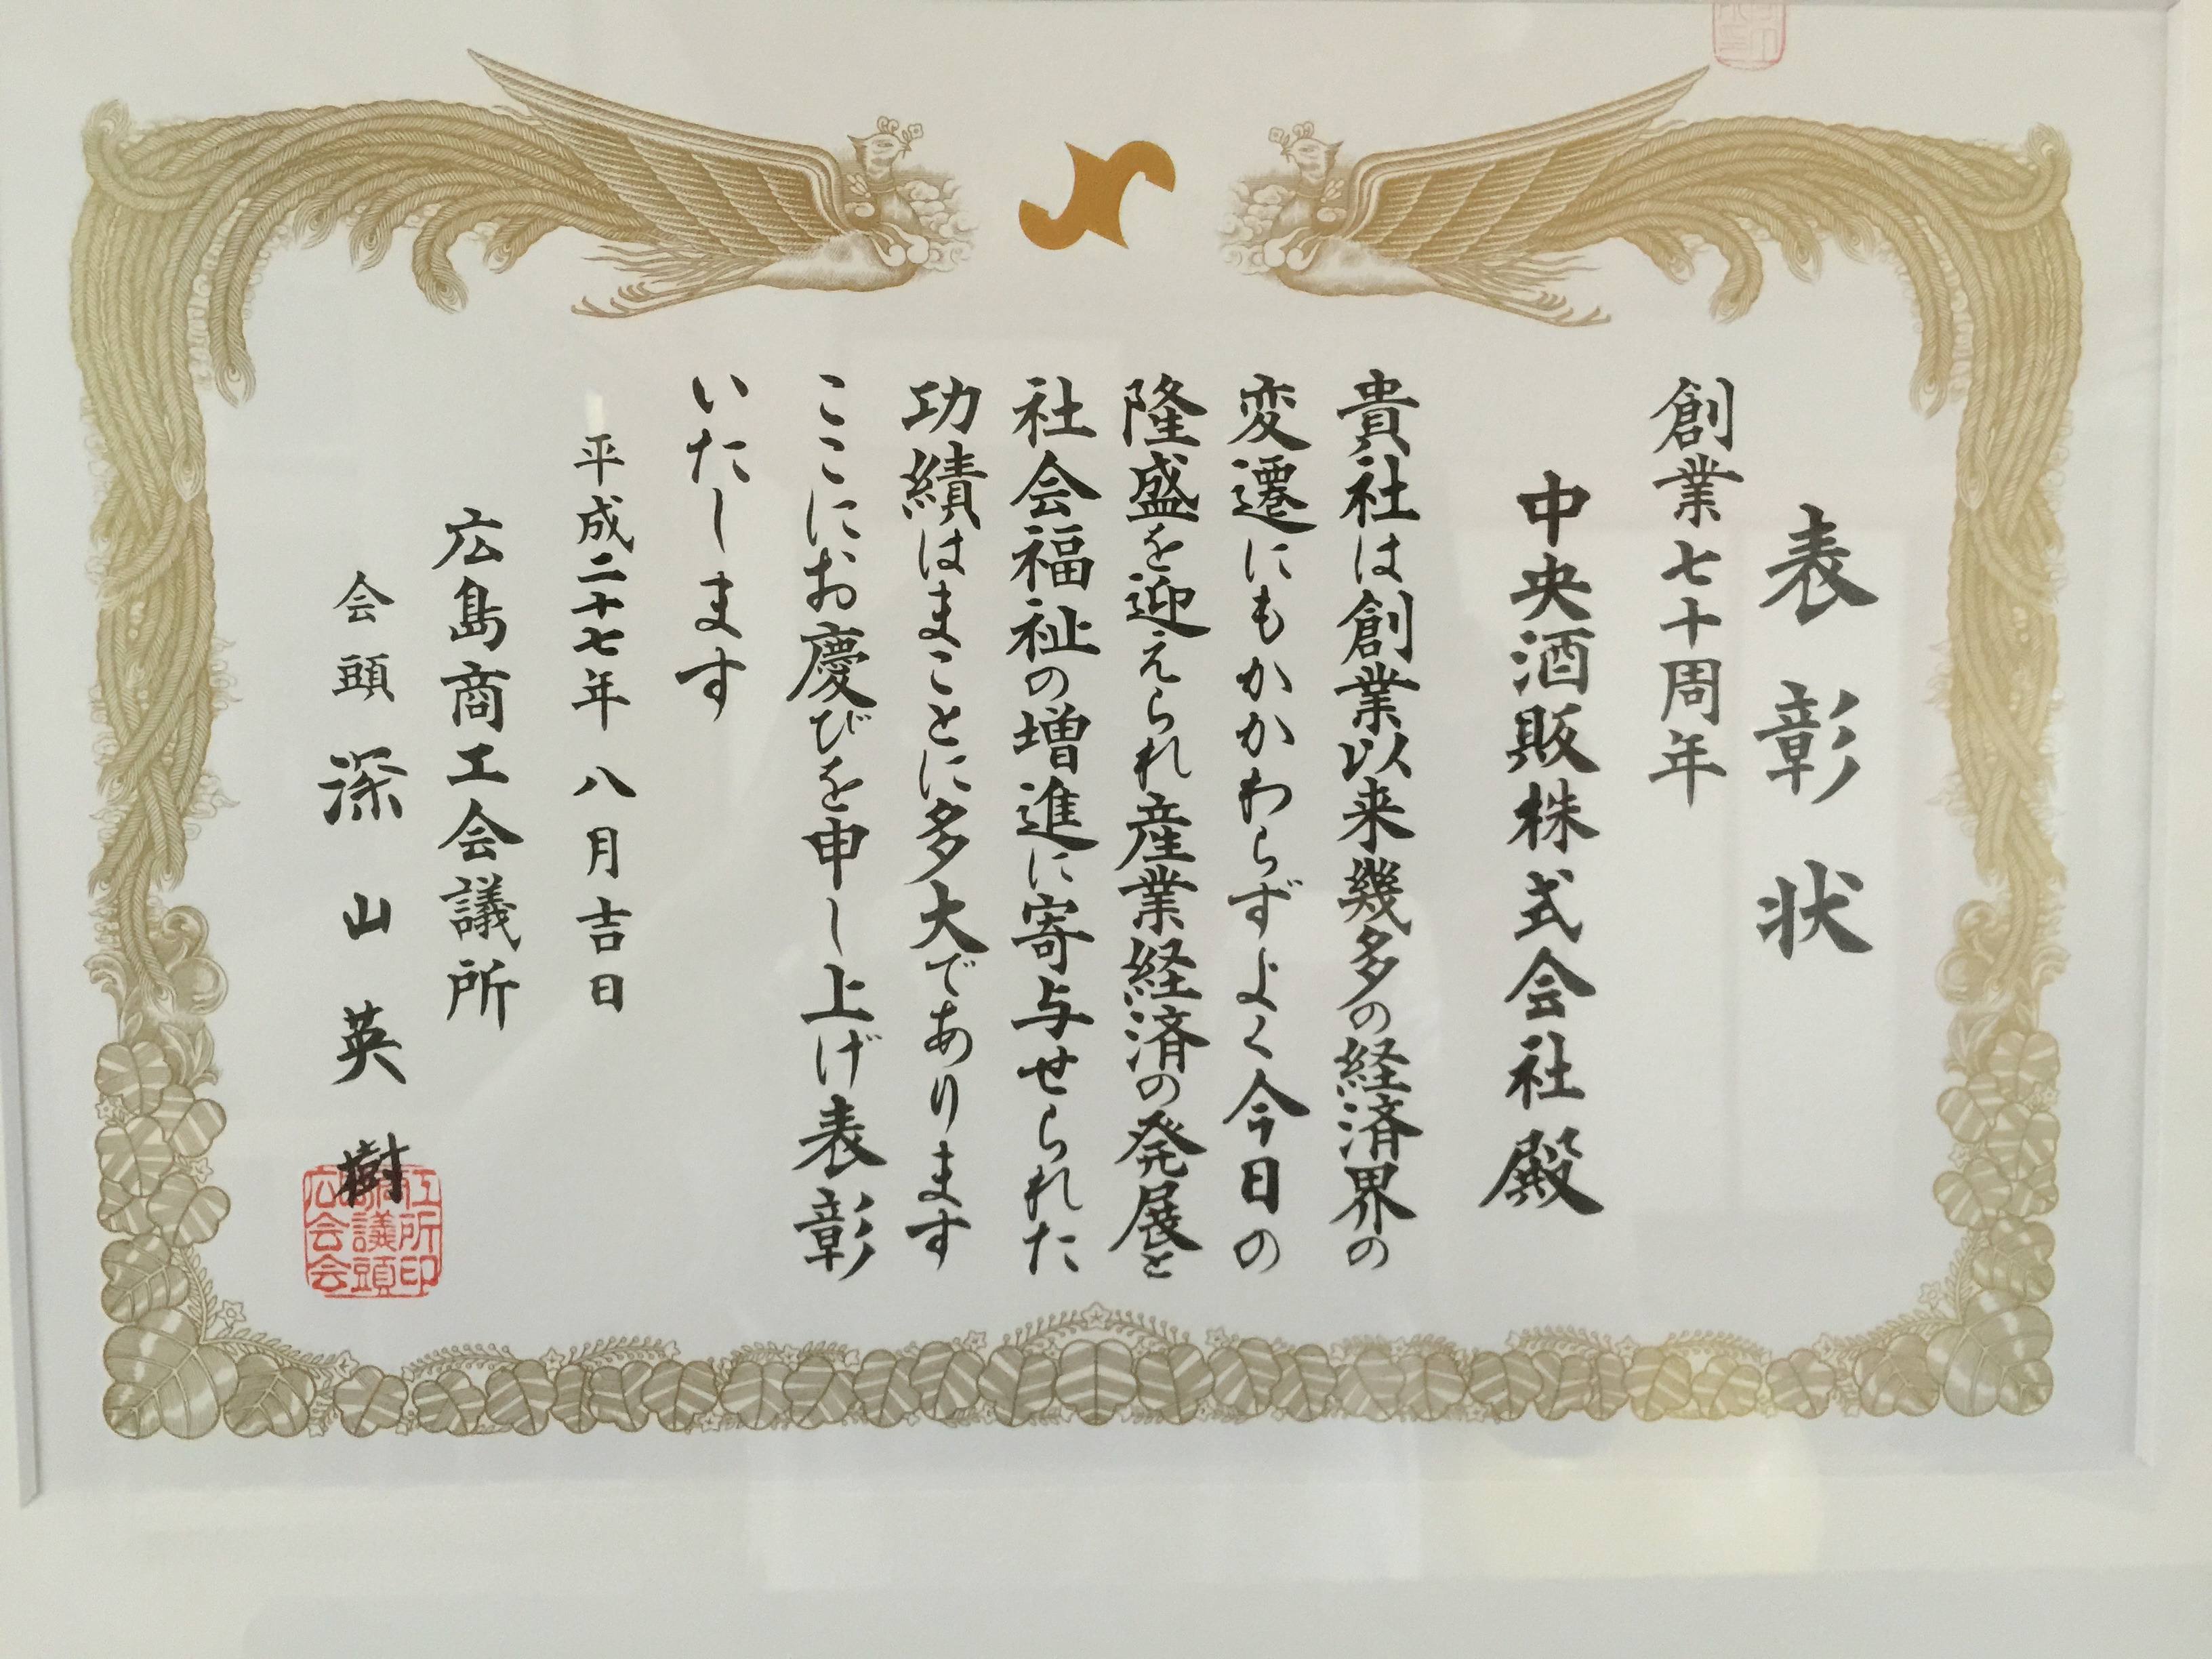 表彰状
創業七十周年
中央酒販株式会社殿
貴社は創業以来幾多の経済界の
変遷にもかかわらずよく今日の
隆盛を迎えられ産業経済の発展と
社会福祉の増進に寄与せられた
功績はまことに多大であります
ここにお慶びを申し上げ表彰
いたします
平成二十七年八月吉日
広島商工会議所
会頭 深山英樹
広島商工
会議所
会頭印